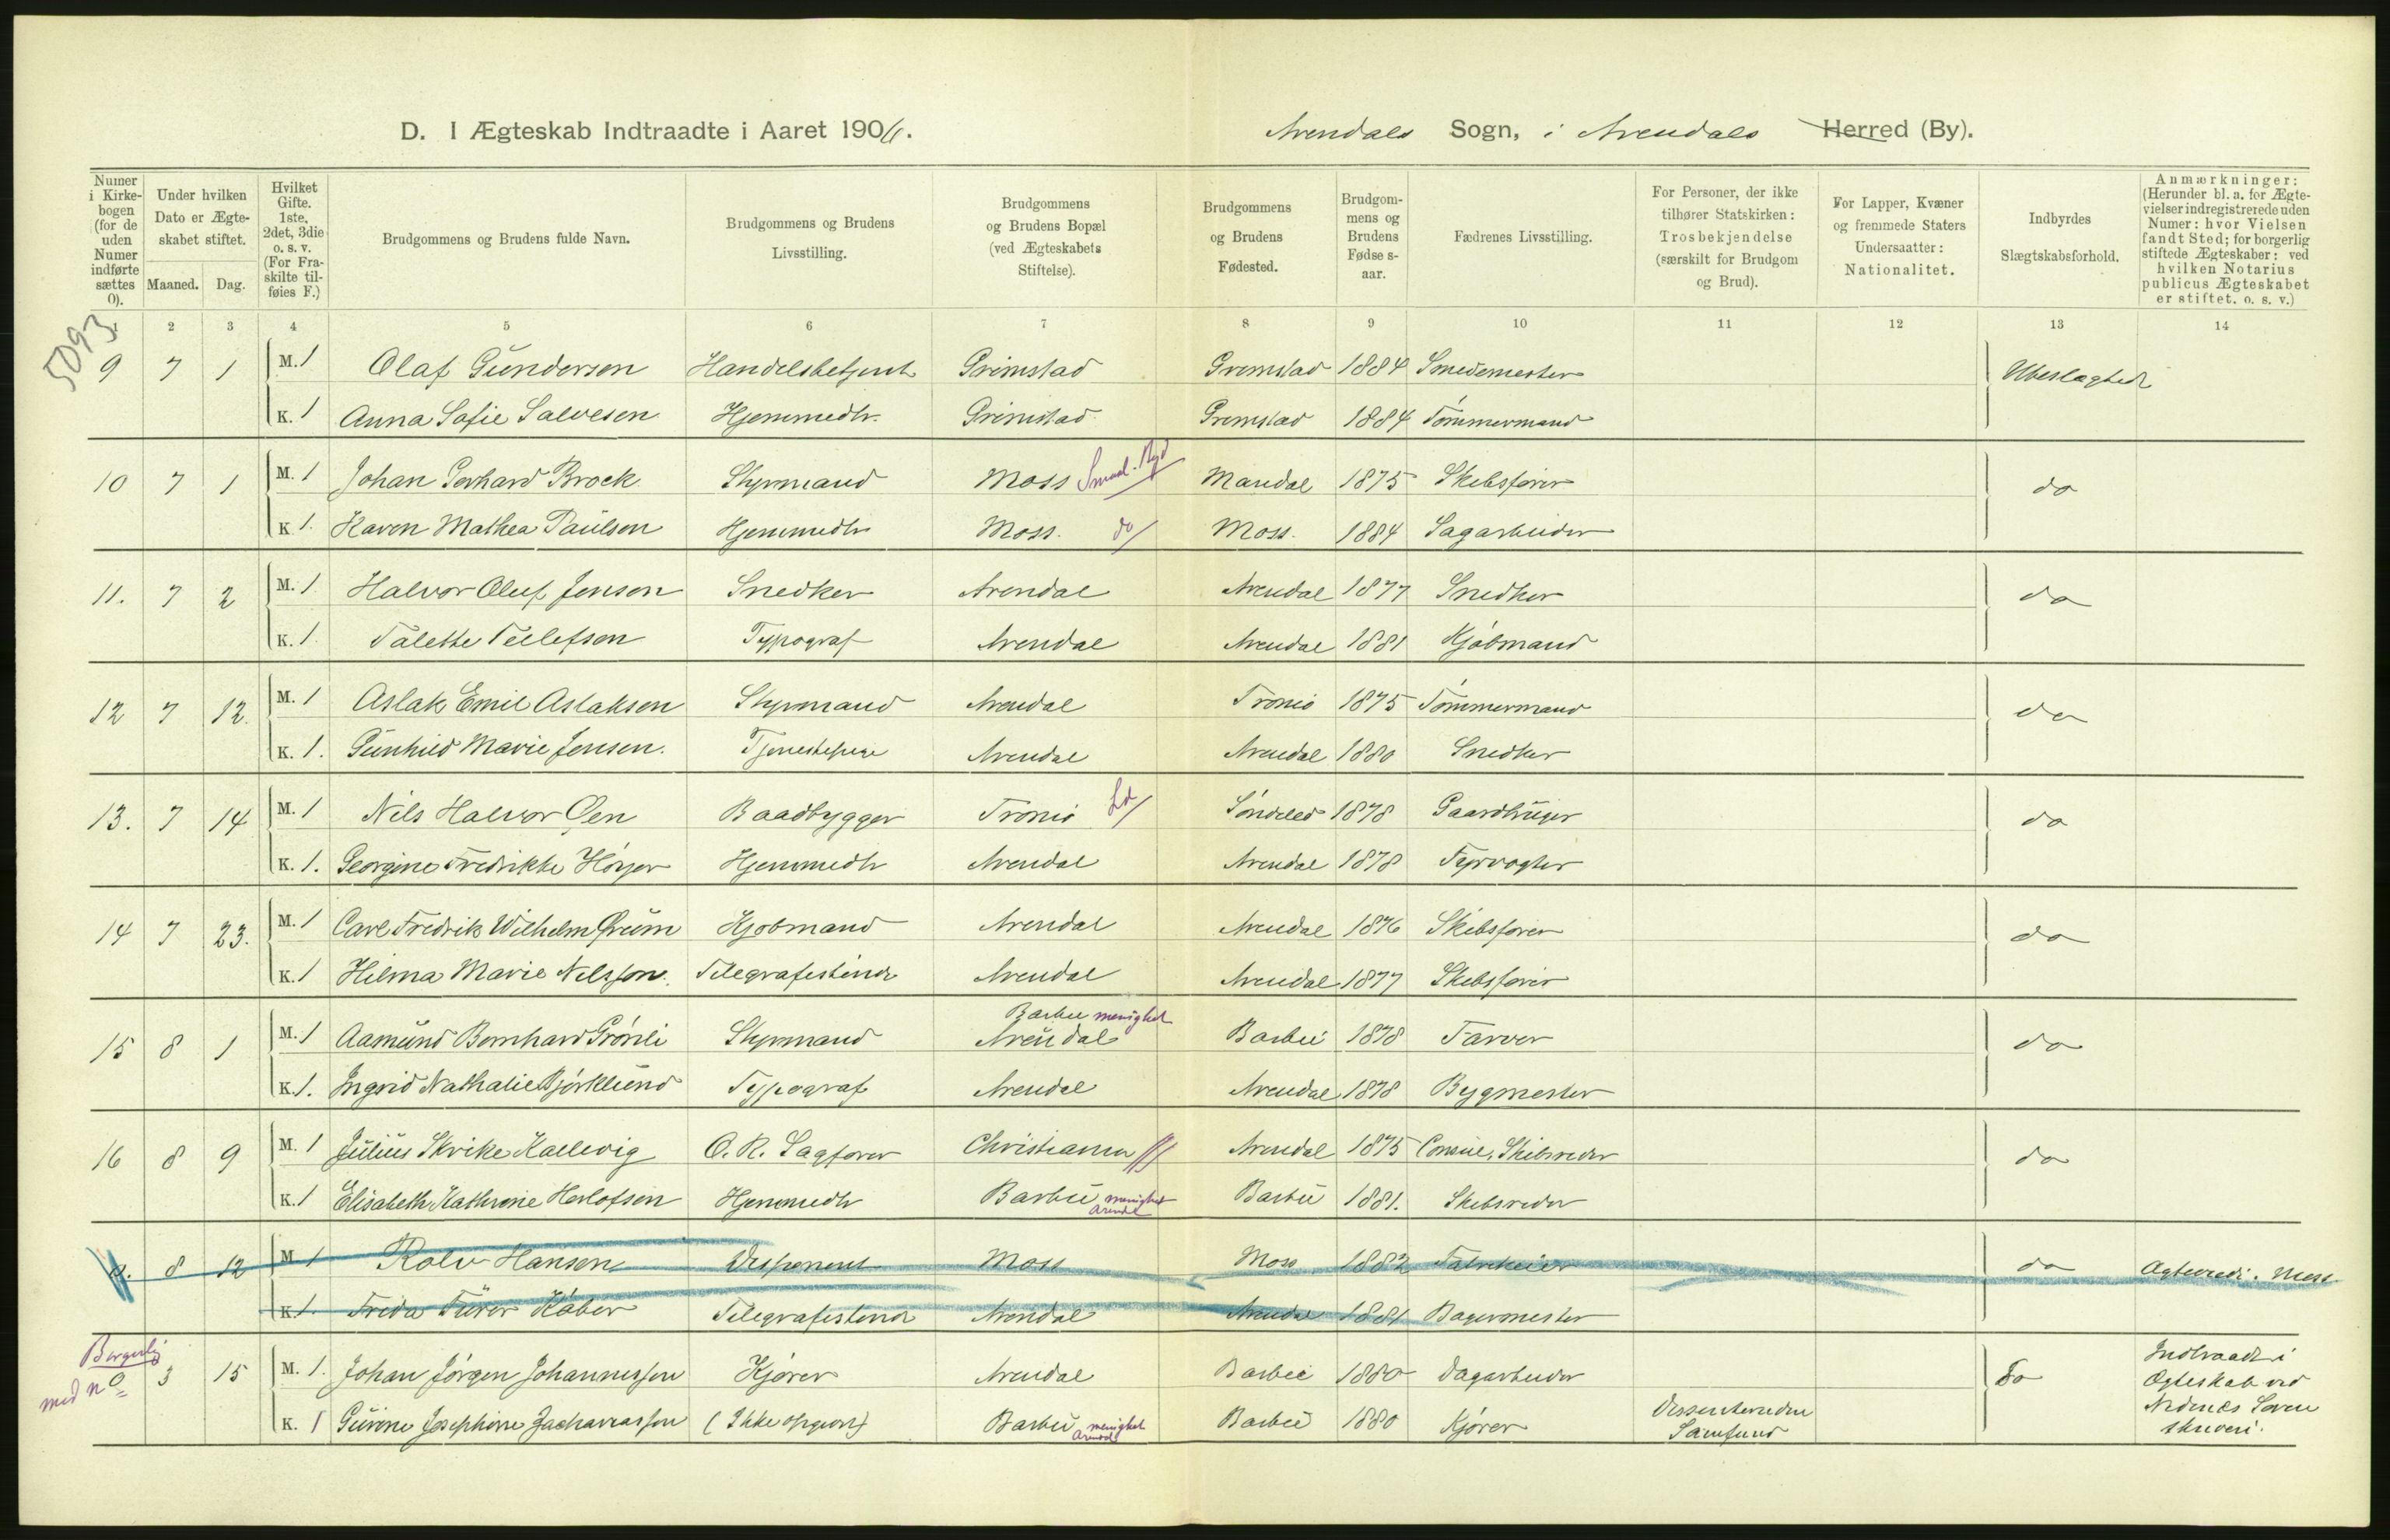 D. I Ægteskab Indtraadte i Aaret 190
Arendals Sogn, i Arendals Herred (By).
Numer i Kirkebogen (for de uden Numer indførte sættes 0).
Under hvilken Dato er Ægteskabet stiftet.
Maaned. Dag.
Hvilket Gifte. 1ste, 2det, 3die o. s. v. (For Fraskilte tilføies F.)
Brudgommens og Brudens fulde Navn.
Brudgommens og Brudens Livsstilling.
Brudgommens og Brudens Bopæl (ved Ægteskabets Stiftelse).
Brudgommens og Brudens Fødested.
Brudgommens og Brudens Fødselsaar.
Fædrenes Livsstilling.
For Personer, der ikke tilhører Statskirken: Trosbekjendelse (særskilt for Brudgom og Brud).
For Lapper, Kvæner og fremmede Staters Undersaatter: Nationalitet.
Indbyrdes Slægtskabsforhold.
Anmærkninger: (Herunder bl. a. for Ægtevielser indregistrerede uden Numer: hvor Vielsen fandt Sted; for borgerlig stiftede Ægteskaber: ved hvilken Notarius publicus Ægteskabet er stiftet. o. s. v.)
2 3 4 5 6 7 8 9 10 11 12 13 14
5093
9 7 1 M. 1 Olaf Gundersen Handelsbetjent Grimstad Grimstad 1884 Smedemester Ubeslægtede
K. 1 Anna Sofie Salvesen Hjemmedtr. Grimstad Grimstad 1884 Tømmermand
10 7 1 M. 1 Johan Gerhard Brock Styrmand Moss Mandal 1875 Skibsfører do
K 1. Karen Mathea Paulsen Hjemmedtr Moss. do Moss. 1884 Sagarbeider
11. 7 2 M. 1 Halvor Oluf Jensen Snedker Arendal Arendal 1877 Snedker do
K. 1. Talette Tellefsen Typograf Arendal Arendal 1881 Kjøbmand
12 7 12. M. 1 Aslak Emil Aslaksen Styrmand Arendal Tromø 1875 Tømmermand do
K. 1. Gunhild Marie Jensen. Tjenestepige Arendal Arendal 1880 Snedker
13. 7 14 M. 1 Nils Halvor Øen Baadbygger Tromø Ld Søndeled 1878 Gaardbruger do
K. 1. Georgine Fredrikke Høyer Hjemmedtr Arendal Arendal 1878 Fyrvogter
14 7 23. M. 1 Carl Fredrik Wilhelm Kjøbmand Arendal Arendal 1876 Skibsfører do
K. 1 Hilma Marie Nilsson. Telegrafistinde Arendal Arendal 1877 Skibsfører
Barbu menighet
15 8 1 M. 1 Aamund Bernhard Grønli Styrmand Arendal Barbu 1878 Farver do
K. 1. Ingrid Nathalie Bjørklund Typograf Arendal Arendal 1878 Bygmester
16 8 9 M. 1 Julius Skrike Kallevig O. R. Sagfører Christiania Arendal 1875 Consul, Skibsreder do
K. 1 Elisabeth Kathrine Herlofsen Hjemmedtr Barbu menighet Arendal Barbu 1881. Skibsreder
8 12 M 1 Rolv Hansen Disponent Moss Moss 1882 Fabrikeier do Ægteviedi. Moss
K 1. Frida Fürer Køber Telegrafistinde Arendal Arendal 1881 Bagermester
Borgerlig
med nº 0 3 15 M. 1. Johan Jørgen Johannessen Kjører Arendal Barbu 1880 Dagarbeider Do Indtraadt i Ægteskab ved Nedenæs Sorenskriveri.
K. 1 Gurine Josephine Zachariassen (Ikke opgivet) Barbu menighet Arendal Barbu 1880 Kjører Dissenterende Samfund